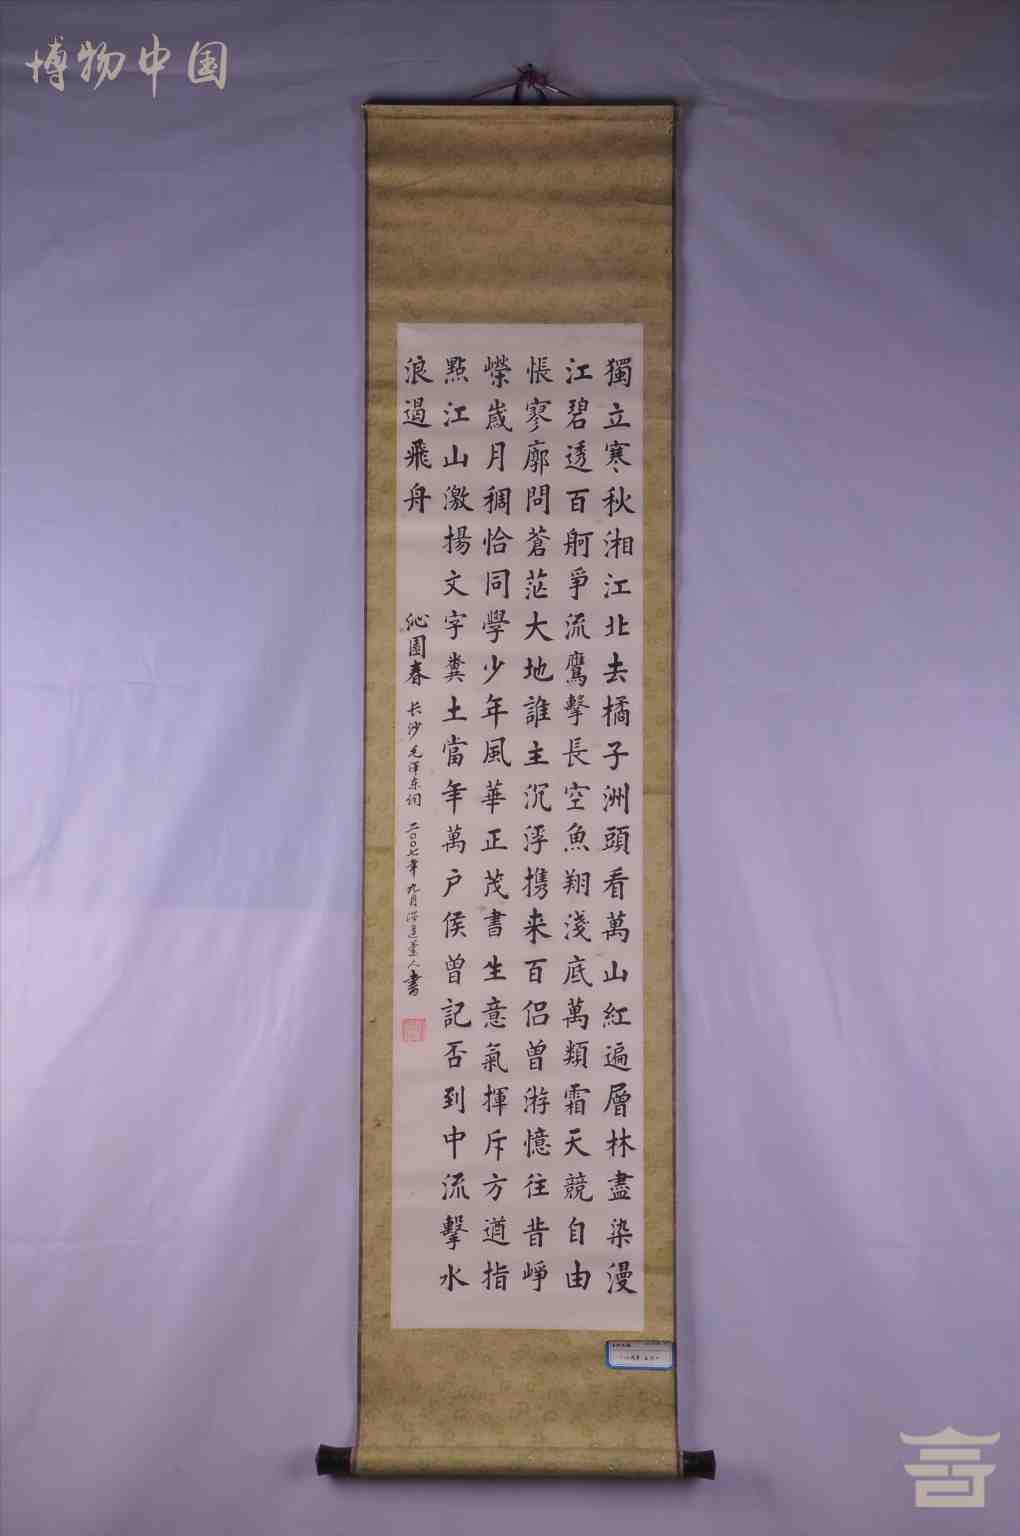 博物中国
獨立寒秋湘江北去橘子洲頭看萬山紅遍層林盡染漫
江碧透百舸爭流鷹擊長空魚翔淺底萬類霜天競自由
悵寥廓問蒼茫大地誰主沉浮携来百侣曾游憶往昔崢
嶸歲月稠恰同學少年風華正茂書生意氣揮斥方遒指
點江山激揚文字糞土當年萬户侯曾記否到中流擊水
浪遏飛舟
沁園春 长沙 毛澤东词 二〇〇七年九月 人書